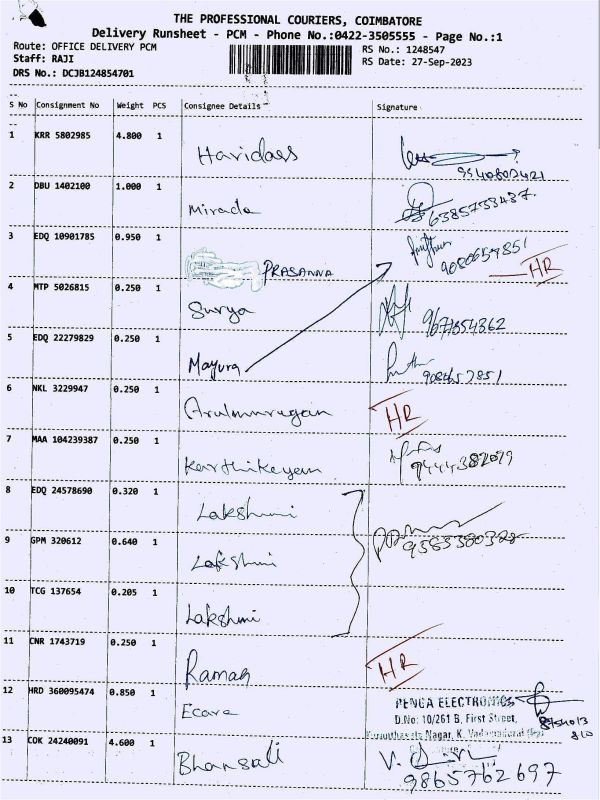 THE PROFESSIONAL COURIERS, COIMBATORE
Delivery Runsheet - PCM - Phone No.:0422-3505555 - Page No.:1
Route: OFFICE DELIVERY PCM RS No.: 1248547
Staff: RAJI RS Date: 27-Sep-2023
DRS No.: DCJB124854701
S No Consignment No Weight PCS Consignee Details Signature
1 KRR 5802985 4.800 1 Haridass
2 DBU 1402100 1.000 1 Mirada
6385753437
3 EDQ 10901785 0.950 1 PRASANNA
9080657851 HR
4 MTP 5026815 0.250 1 Surya
5 EDQ 22279829 0.250 1 Mayura
6 NKL 3229947 0.250 1 Arulmurugan HR
7 MAA 104239387 0.250 1 Karthikeyan
8 EDQ 24578690 0.320 1 Lakshmi
9 GPM 320612 0.640 1 Lakshmi
10 TCG 137654 0.205 1 Lakshmi
11 CNR 1743719 0.250 1 Raman HR
12 HRD 360095474 0.850 1 Ecare
PENGA ELECTRONICS
D.No: 10/261 B, First Street,
Nagar, K.
13 COK 24240091 4.600 1 Bhansali
9865762697